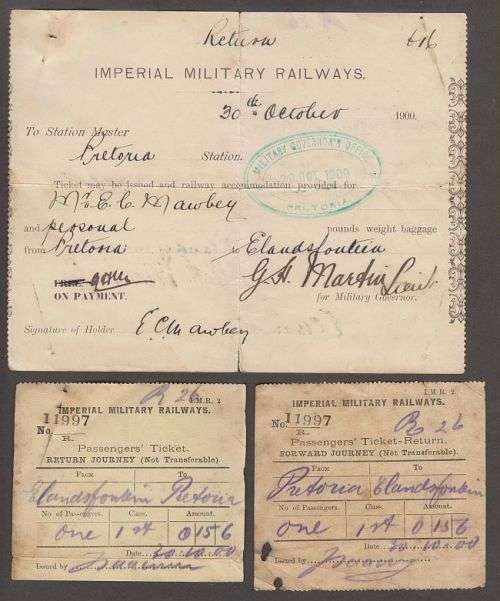 Return 616
IMPERIAL MILITARY RAILWAYS.
30th October 1900.
To Station Master
Pretoria Station.
MILITARY GOVERNOR'S OFFICE
30 OCT. 1900
PRETORIA
Ticket may be issued and railway accommodation provided for
Mr E. C. Mawbey
and personal pounds weight baggage
from Pretoria to Elandsfontein
FREE
ON PAYMENT.
G. H. Martin Lieut
for Military Governor.
Signature of Holder E C Mawbey
R 26 I.M.R. 2
IMPERIAL MILITARY RAILWAYS.
No. 11997
R.
Passengers' Ticket.
RETURN JOURNEY (Not Transferable).
FROM To
Elandsfontein Pretoria
No of Passengers. Class. Amount.
One 1st 0 15 6
Date 30.10.00
Issued by
I.M.R. 2
IMPERIAL MILITARY RAILWAYS.
No. 11997 R 26
R.
Passengers' Ticket-Return.
FORWARD JOURNEY (Not Transferable).
FROM To
Pretoria Elandsfontein
No of Passengers. Class. Amount.
One 1st 0 15 6
Date 30.10.00
Issued by